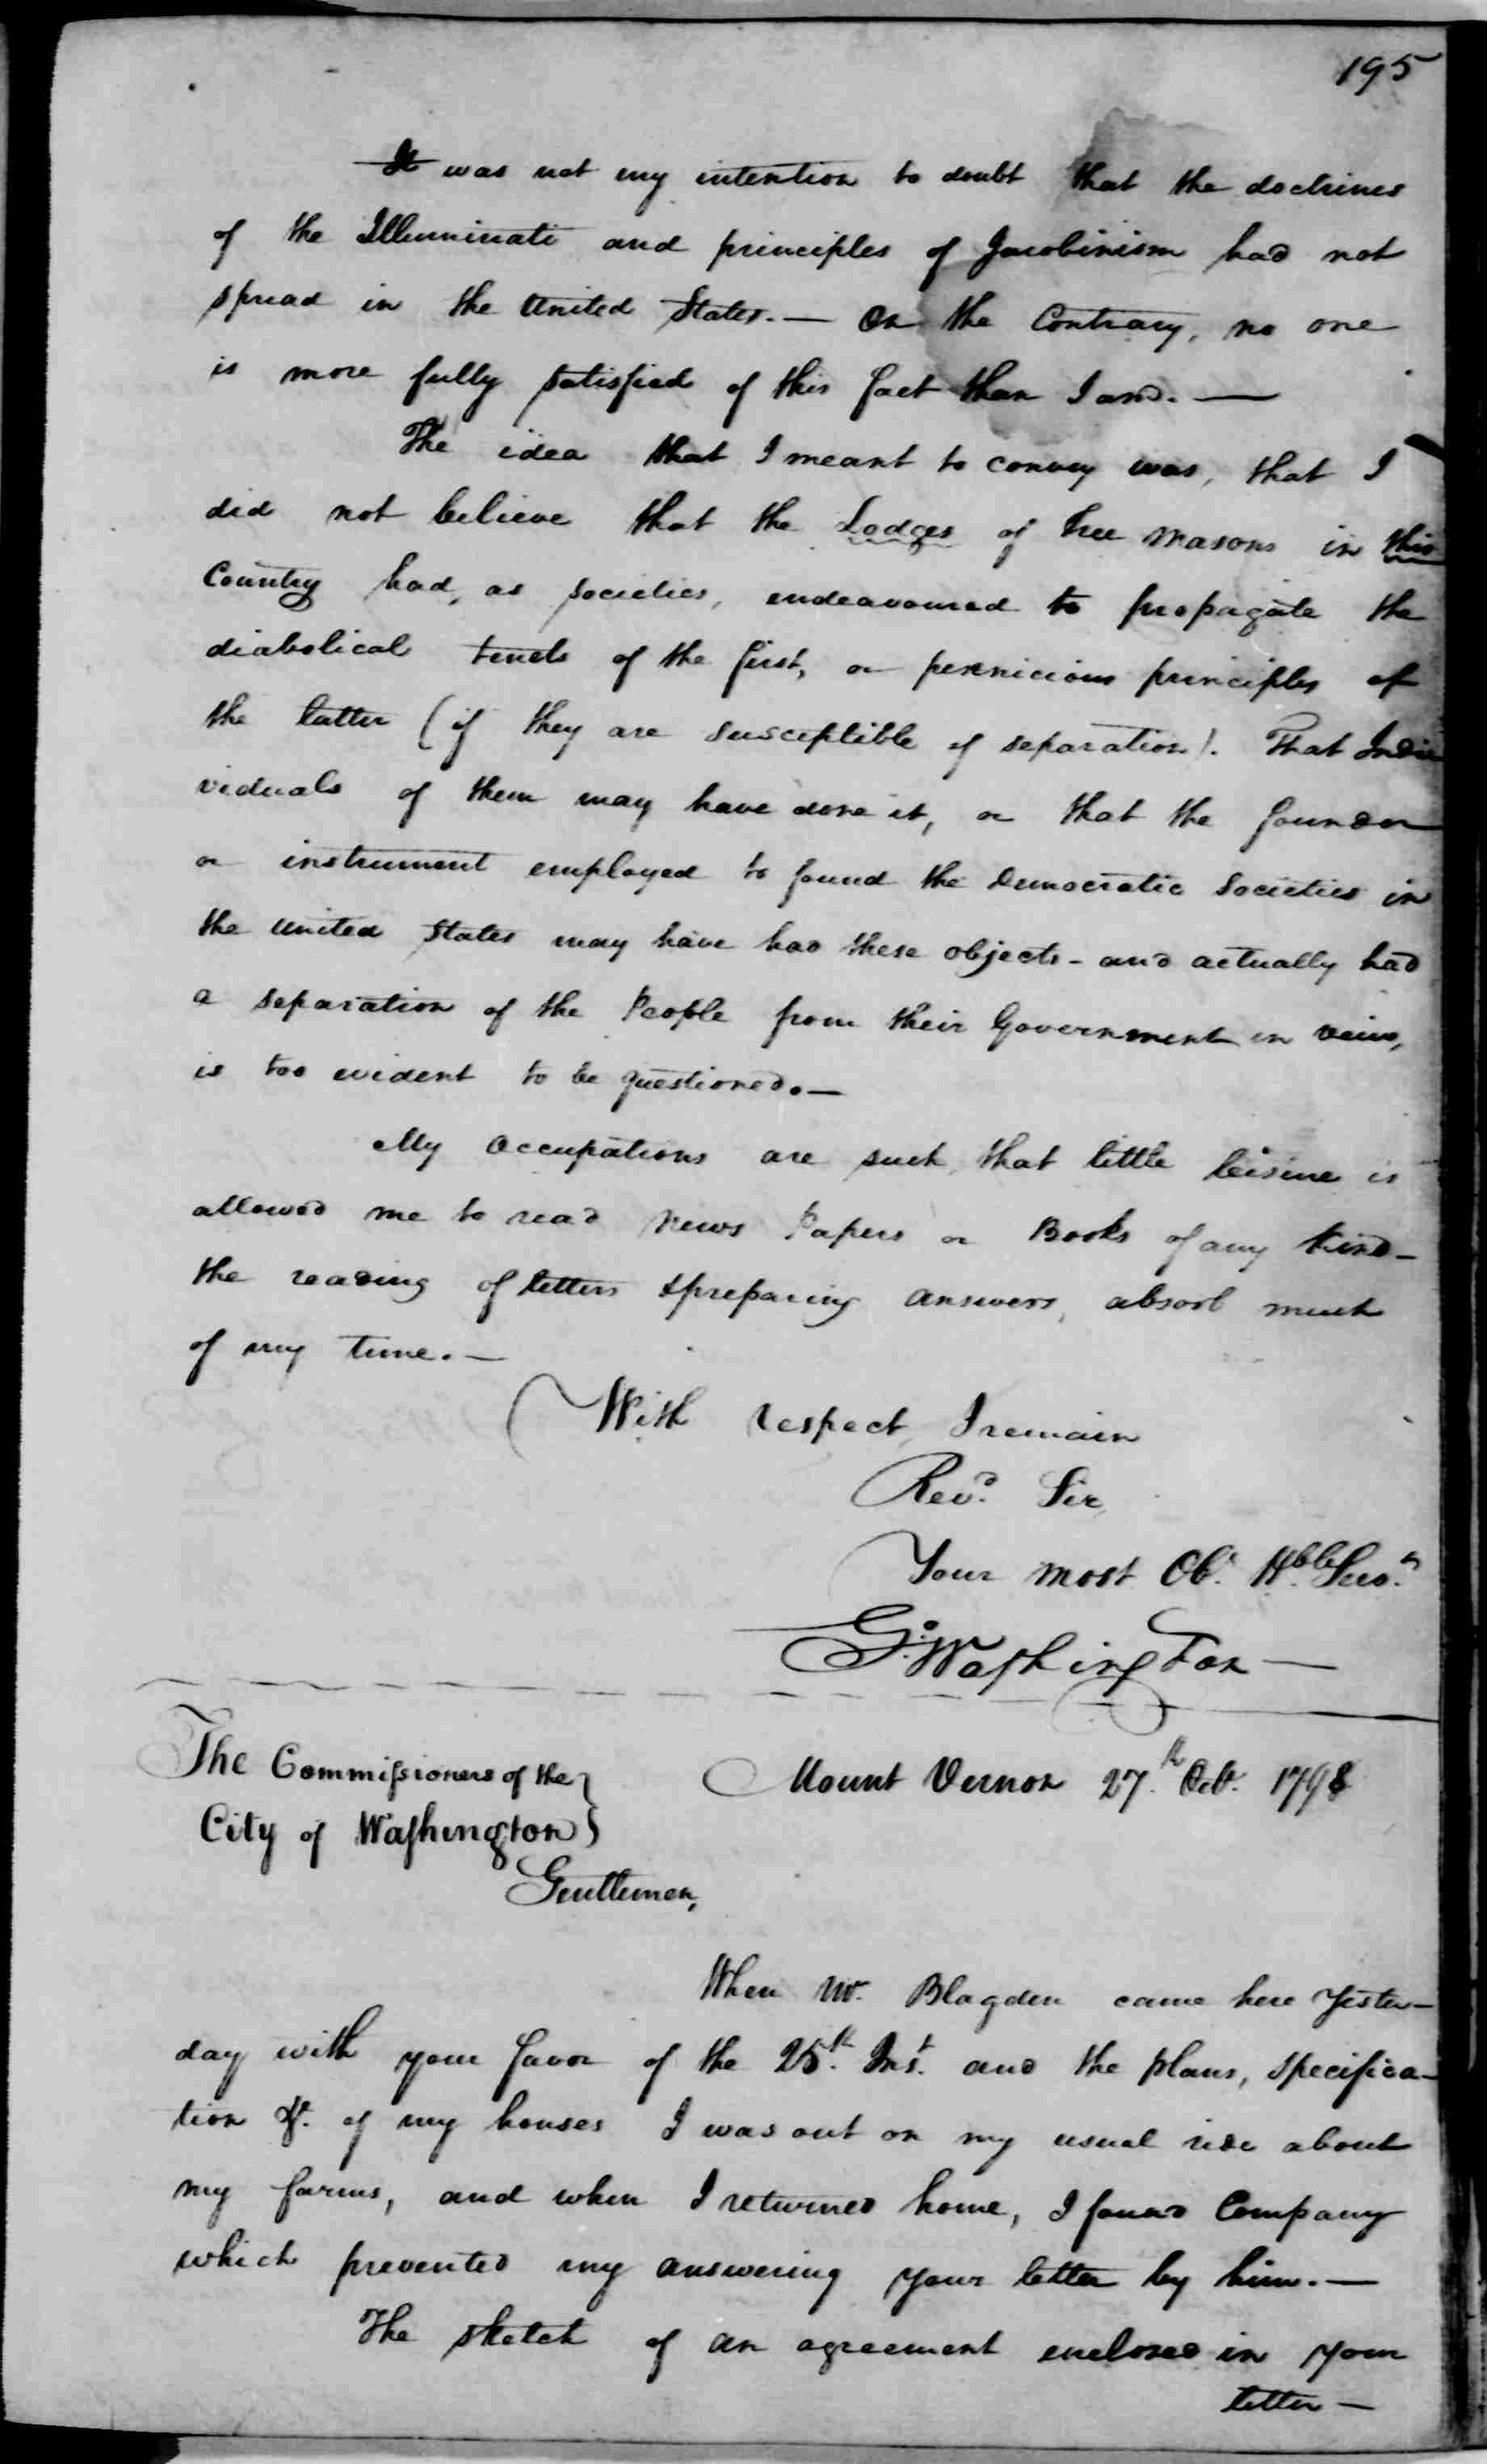 195
It was not my intention to doubt that the doctrines
of the Illuminati and principles of Jacobinism had not
spread in the United States. — On the Contrary, no one
is more fully satisfied of this fact than I am. —
The idea that I meant to convey was, that I
did not believe that the Lodges of Free Masons in this
Country had, as societies, endeavoured to propagate the
diabolical tenets of the first, or pernicious principles of
the latter (if they are susceptible of separation). That Indi
viduals of them may have done it, or that the founder
or instrument employed to found the Democratic Societies in
the United States may have had these objects - and actually had
a separation of the People from their Government in view,
is too evident to be questioned. —
My occupations are such, that little leisure is
allowed me to read News Papers or Books of any kind —
the reading of letters & preparing answers, absorb much
of my time. —
With respect, I remain
Revd. Sir,
Your most Obt. Hble Servt.
Go: Washington —
The Commissioners of the } Mount Vernon 27.th Oct. 1798
City of Washington }
Gentlemen,
When Mr. Blagden came here Yester-
day with your favor of the 25.th Inst. and the plans, specifica-
tion &c. of my houses I was out on my usual ride about
my farms, and when I returned home, I found Company
which prevented my answering your letter by him. —
The sketch of an agreement enclosed in your
letter —